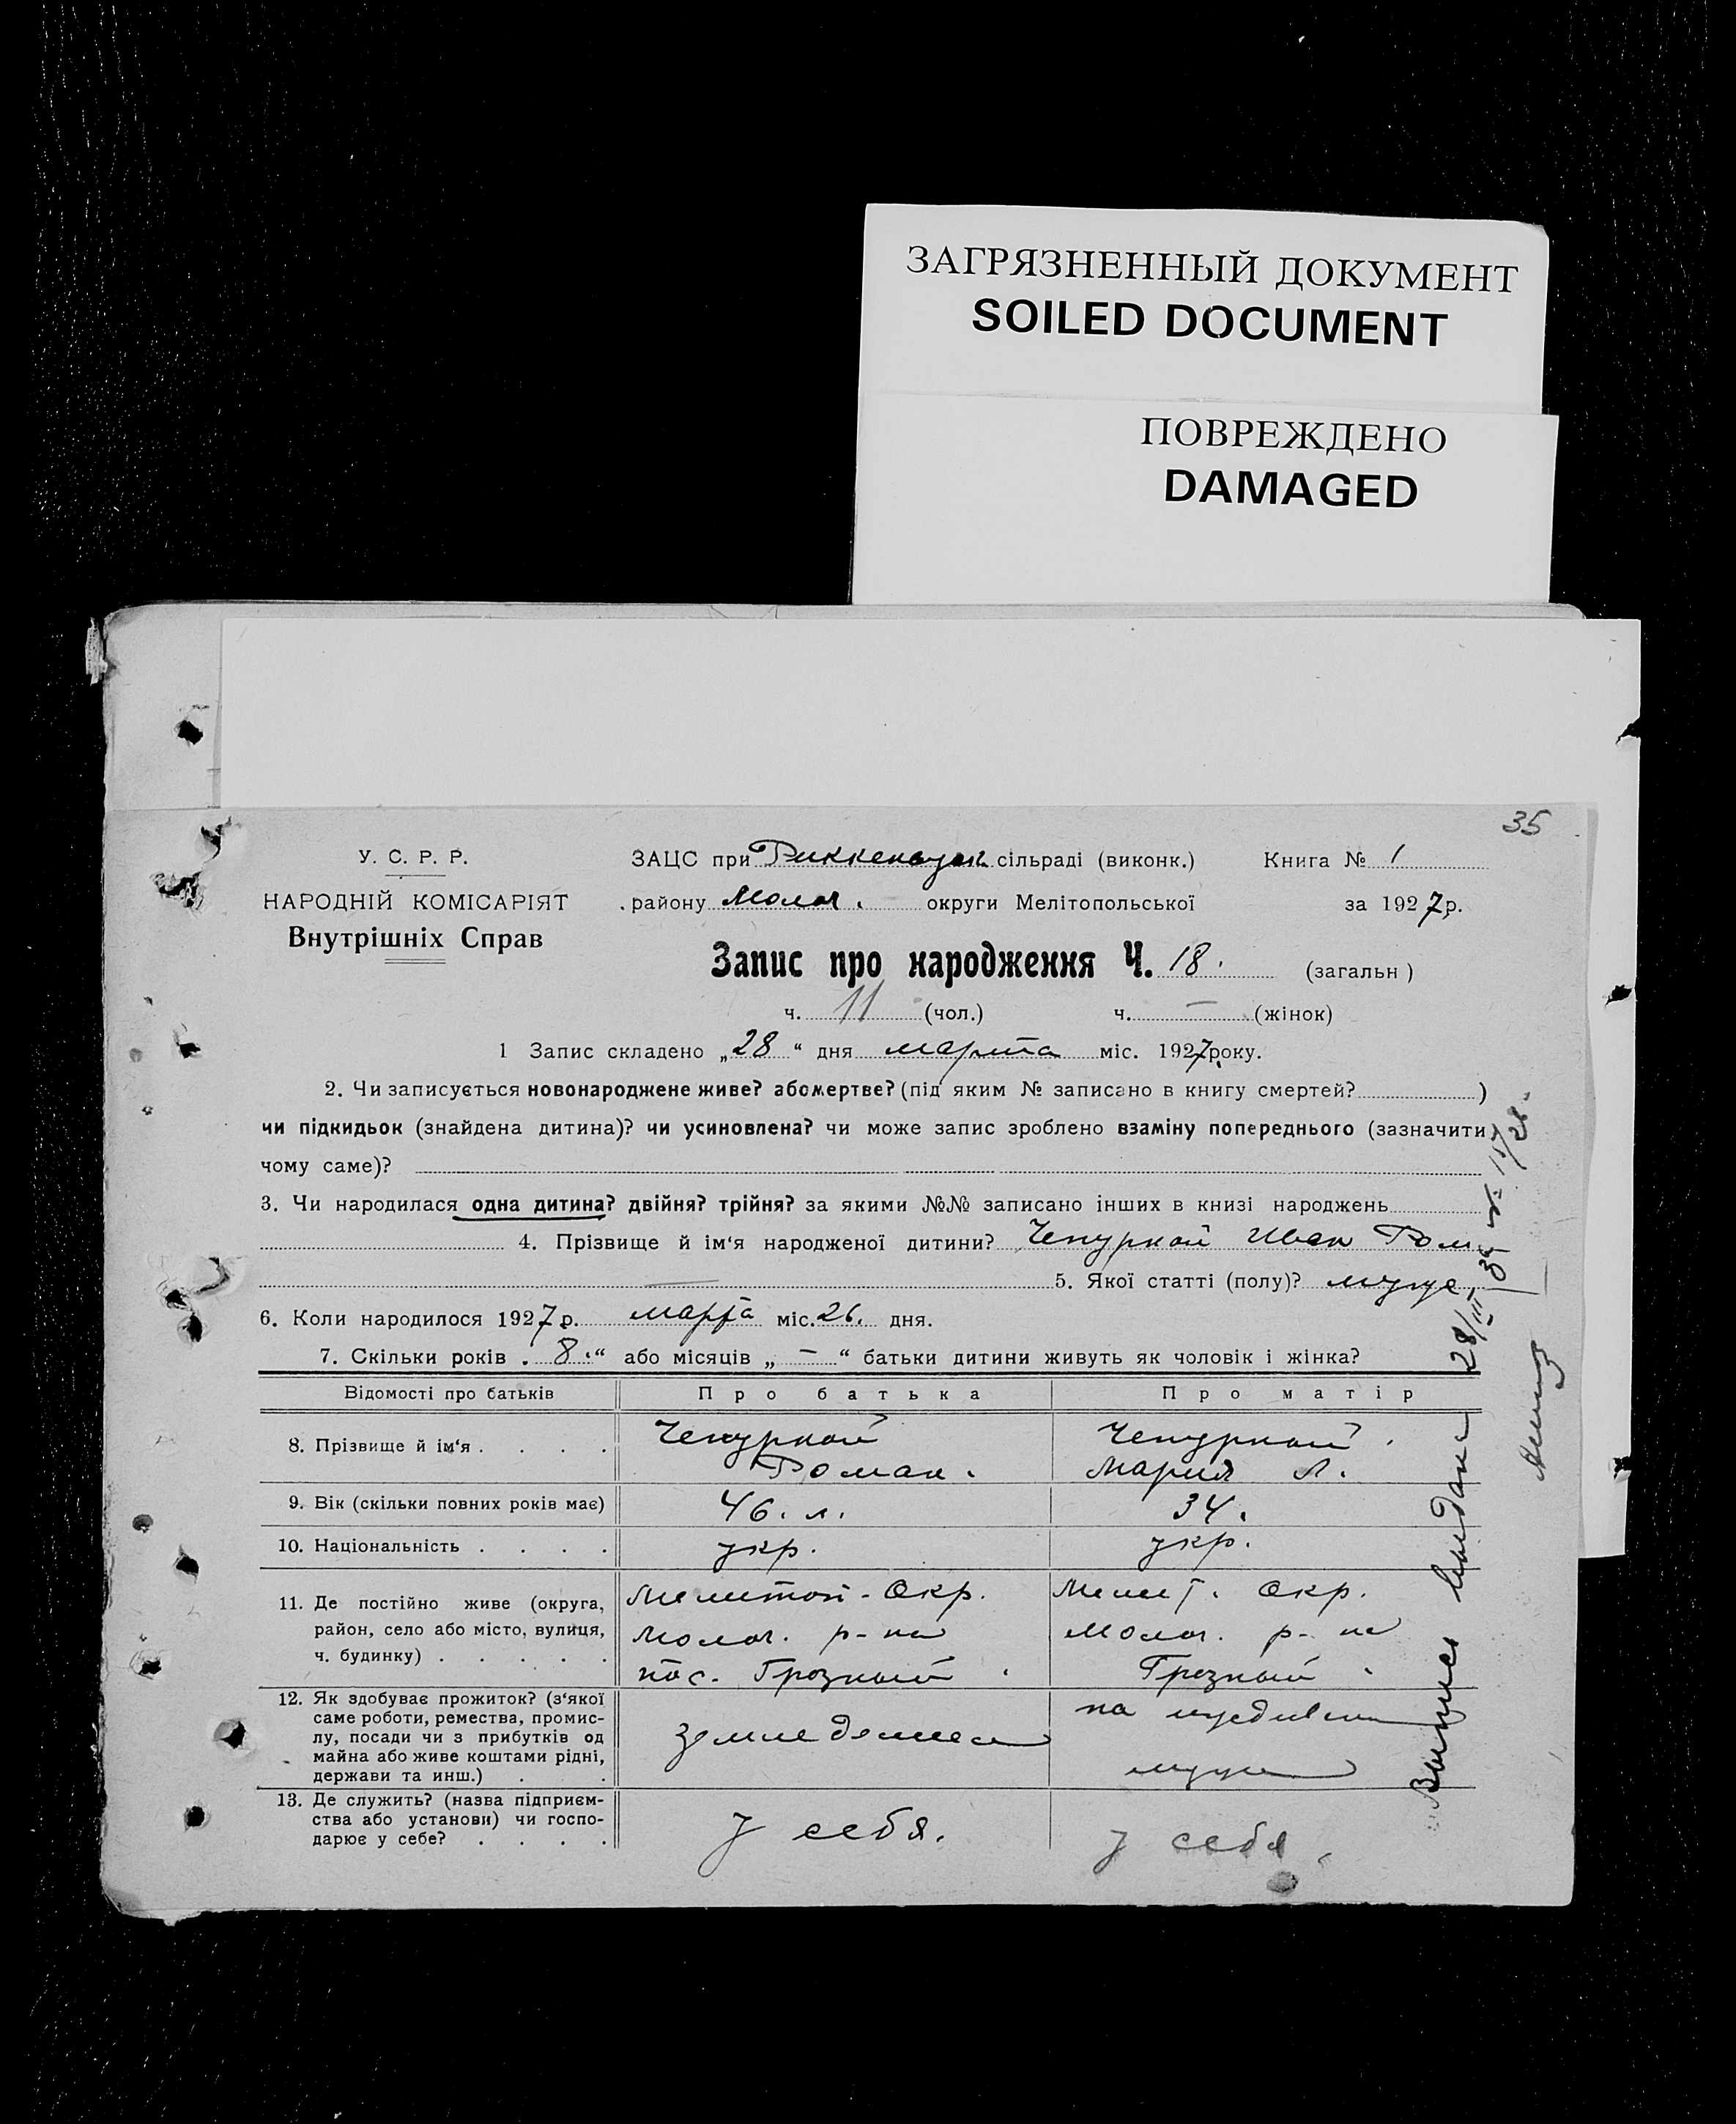 ЗАГРЯЗНЕННЫЙ ДОКУМЕНТ
SOILED DOCUMENT
ПОВРЕЖДЕНО
DAMAGED
35
У. С. Р. Р.
НАРОДНІЙ КОМІСАРІЯТ
Внутрішніх Справ
ЗАЦС при сільраді (виконк.) Книга № 1
району Молоч. округи Мелітопольської за 1927 р.
Запис про народження Ч. 18. (загальн)
ч. 11 (чол.) ч. — (жінок)
1 Запис складено „28“ дня марта міс. 1927 року.
2. Чи записується новонароджене живе? або мертве? (під яким № записано в книгу смертей? )
чи підкидьок (знайдена дитина)? чи усиновлена? чи може запис зроблено взаміну попереднього (зазначити
чому саме)?
3. Чи народилася одна дитина? двійня? трійня? за якими №№ записано інших в книзі народжень
4. Прізвище й ім‘я народженої дитини? Чепурной Иван Ром
— 5. Якої статті (полу)? мужс.
6. Коли народилося 1927 р. марта міс. 26. дня.
7. Скільки років „8“ або місяців „—“ батьки дитини живуть як чоловік і жінка?
Відомості про батьків Про батька Про матір
8. Прізвище й ім‘я . . . . Чепурной Роман. Чепурной. Мария Л.
9. Вік (скільки повних років має) 46. л. 34.
10. Національність . . . . укр. укр.
11. Де постійно живе (округа,
район, село або місто, вулиця,
ч. будинку) . . . . .
Мелитоп. Окр.
Молоч. р-на
пос. Грозный.
Мелит. Окр.
Молоч. р-на
Грозный.
12. Як здобуває прожиток? (з‘якої
саме роботи, ремества, промис-
лу, посади чи з прибутків од
майна або живе коштами рідні,
держави та инш.) . .
земледелием
на иждивении
мужа
13. Де служить? (назва підприєм-
ства або установи) чи госпо-
дарює у себе? . . . .
у себя.
у себя.
Выпись выдана 28/III